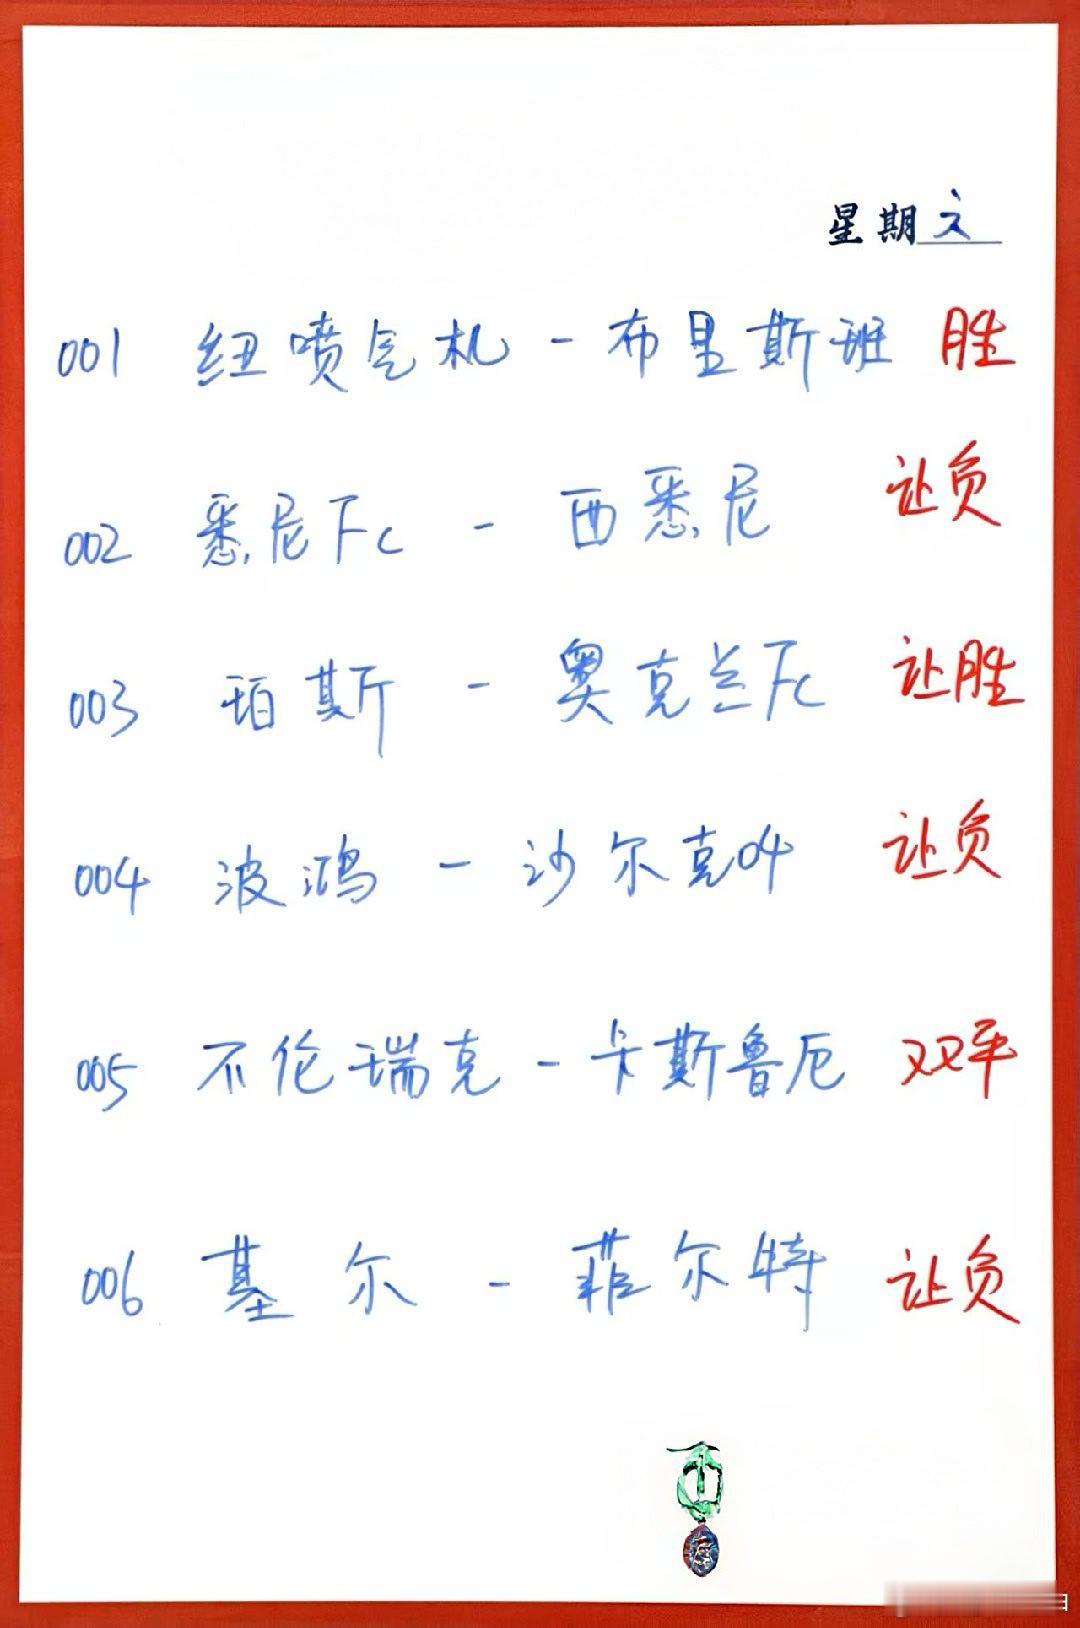 星期六
001 纽喷气机 - 布里斯班 胜
002 悉尼Fc - 西悉尼 让负
003 珀斯 - 奥克兰Fc 让胜
004 波鸿 - 沙尔克04 让负
005 不伦瑞克 - 卡斯鲁厄 双平
006 基尔 - 菲尔特 让负